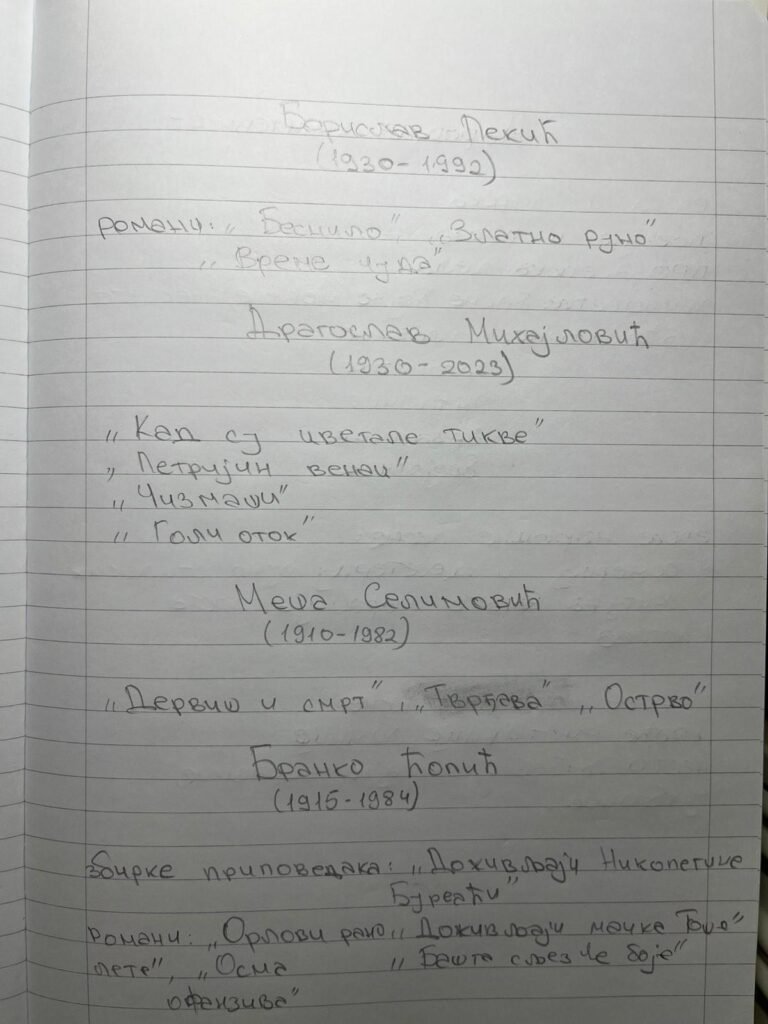 Борислав Пекић
(1930-1992)
романи: „Беснило", „Златно руно"
„Време чуда"
Драгослав Михајловић
(1930-2023)
„Кад су цветале тикве"
„Петријин венац"
„Чизмаши"
„Голи оток"
Меша Селимовић
(1910-1982)
„Дервиш и смрт", „Тврђава" „Острво"
Бранко Ћопић
(1915-1984)
збирке приповедака: „Доживљаји Николетине
Бурсаћи"
Романи: „Орлови рано „Доживљаји мачке Тоше"
лете", „Осма „Башта сљезове боје"
офанзива"